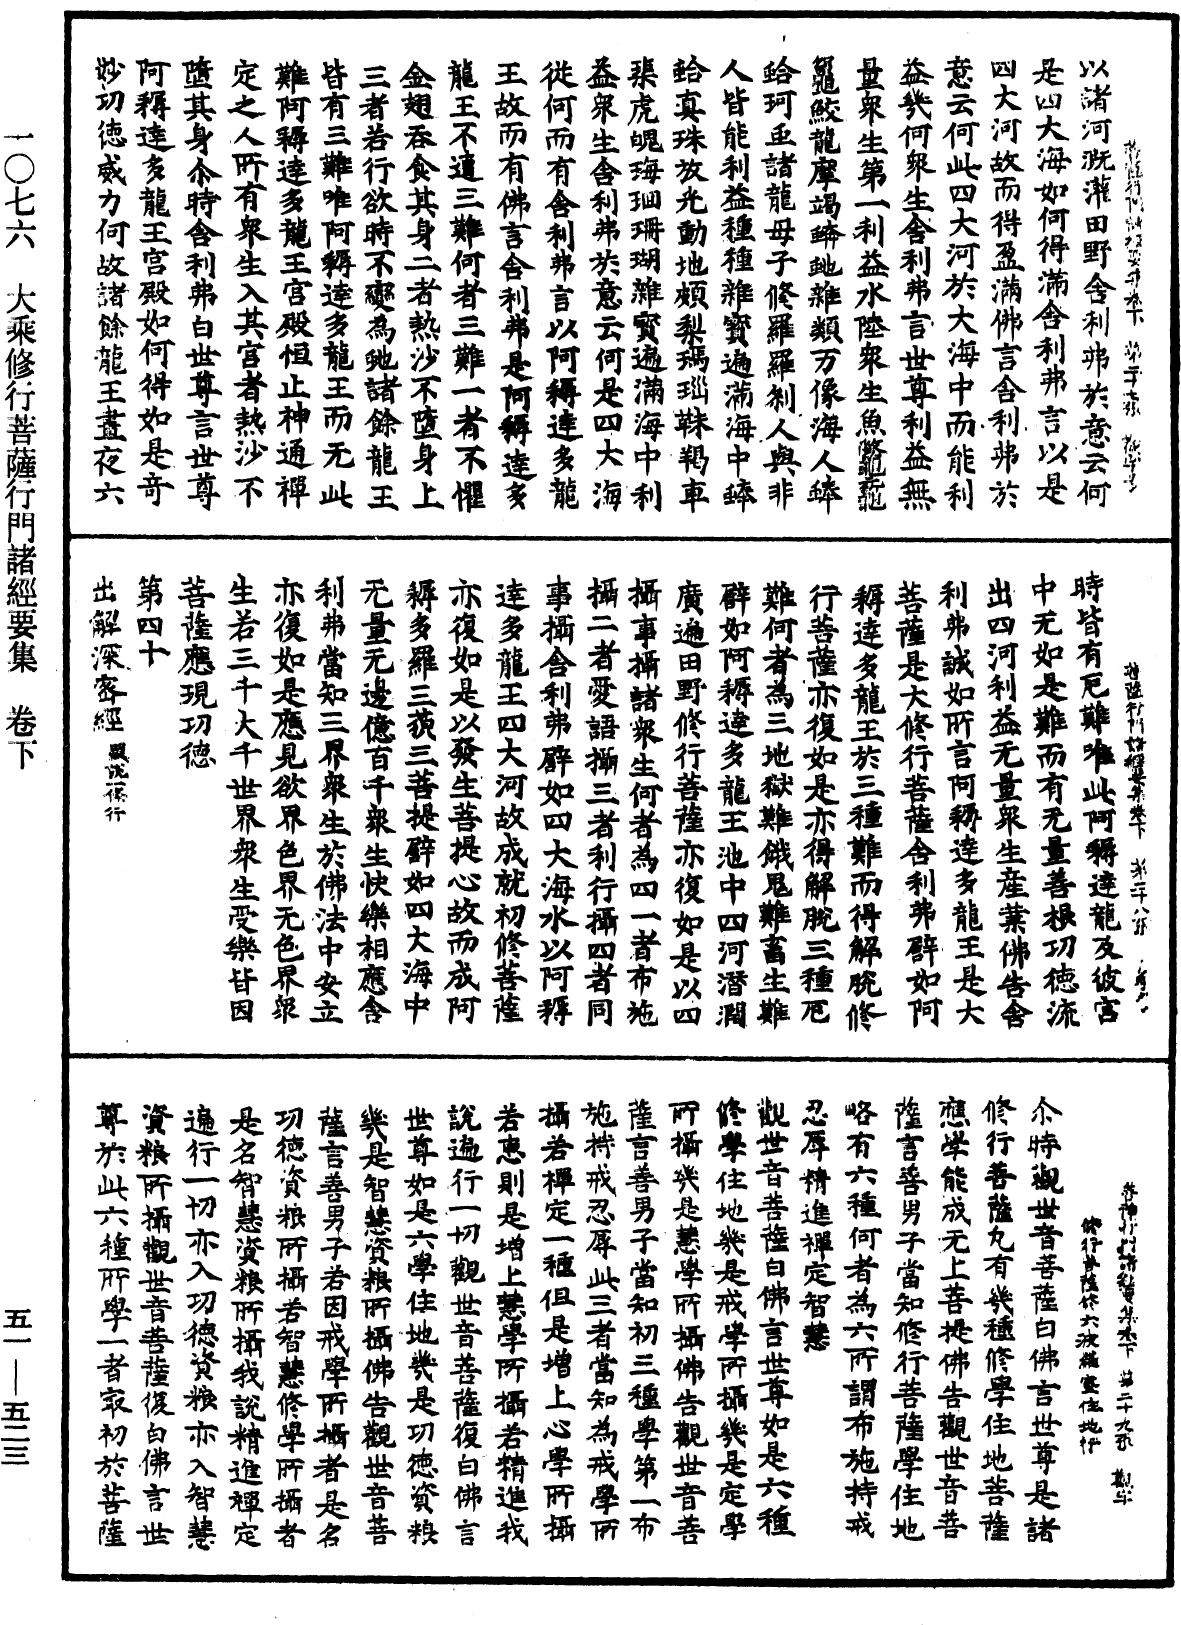 以諸河溉灌田野舍利弗於意云何
是四大海如何得滿舍利弗言以是
四大河故而得盈滿佛言舍利弗於
意云何此四大河於大海中而能利
益幾何衆生舍利弗言世尊利益無
量衆生第一利益水陸衆生魚鱉黿鼉
鼉鮫龍摩竭
諸龍母子修羅羅刹人與非
人皆能利益種種雜寶遍滿海中
蛤真珠放光動地頗梨瑪瑙
渠虎魄海珊瑚雜寶遍滿海中利
益衆生舍利弗於意云何是四大海
從何而有舍利弗言以阿耨達多龍
王故而有佛言舍利弗是阿耨達多
龍王不遭三難何者三難一者不懼
金翅吞食其身二者熱沙不墮身上
三者若行欲時不變為虵諸餘龍王
皆有三難唯阿耨達多龍王而无此
難阿耨達多龍王宮殿恒止神通禪
定之人所有衆生入其宮者熱沙不
墮其身尒時舍利弗白世尊言世尊
阿耨達多龍王宮殿如何得如是奇
妙功德威力何故諸餘龍王晝夜六
時皆有厄難唯此阿耨達龍及彼宮
中无如是難而有无量善根功德流
出四河利益无量衆生産業佛告舍
利弗誠如所言阿耨達多龍王是大
菩薩是大修行菩薩舍利弗譬如阿
耨達多龍王於三種難而得解脫修
行菩薩亦復如是亦得解脫三種厄
難何者為三地獄難餓鬼難畜生難
譬如阿耨達多龍王池中四河潛潤
廣遍田野修行菩薩亦復如是以四
攝事攝諸衆生何者為四一者布施
攝二者愛語攝三者利行攝四者同
事攝舍利弗譬如四大海水以阿耨
達多龍王四大河故成就初修菩薩
亦復如是以發生菩提心故而成阿
耨多羅三藐三菩提譬如四大海中
无量无邊億百千衆生快樂相應舍
利弗當知三界衆生於佛法中安立
亦復如是應見欲界色界无色界衆
生若三千大千世界衆生受樂皆因
菩薩應現功德
第四十
出解深密經
尒時觀世音菩薩白佛言世尊是諸
修行菩薩凡有幾種修學住地菩薩
應學能成无上菩提佛告觀世音菩
薩言善男子當知修行菩薩學住地
略有六種何者為六所謂布施持戒
忍辱精進禪定智慧
觀世音菩薩白佛言世尊如是六種
修學住地幾是戒學所攝幾是定學
所攝幾是慧學所攝佛告觀世音菩
薩言善男子當知初三種學第一布
施持戒忍辱此三者當知為戒學所
攝若禪定一種但是增上心學所攝
若惠則是增上慧學所攝若精進我
說遍行一切觀世音菩薩復白佛言
世尊如是六學住地幾是功德資粮
幾是智慧資粮所攝佛告觀世音菩
薩言善男子若因戒學所攝者是名
功德資粮所攝若智慧修學所攝者
是名智慧資粮所攝我說精進禪定
遍行一切亦入功德資粮亦入智慧
資粮所攝觀世音菩薩復白佛言世
尊於此六種所學一者最初於菩薩
一〇七六　大乘修行菩薩行門諸經要集　卷下
五一—五二三